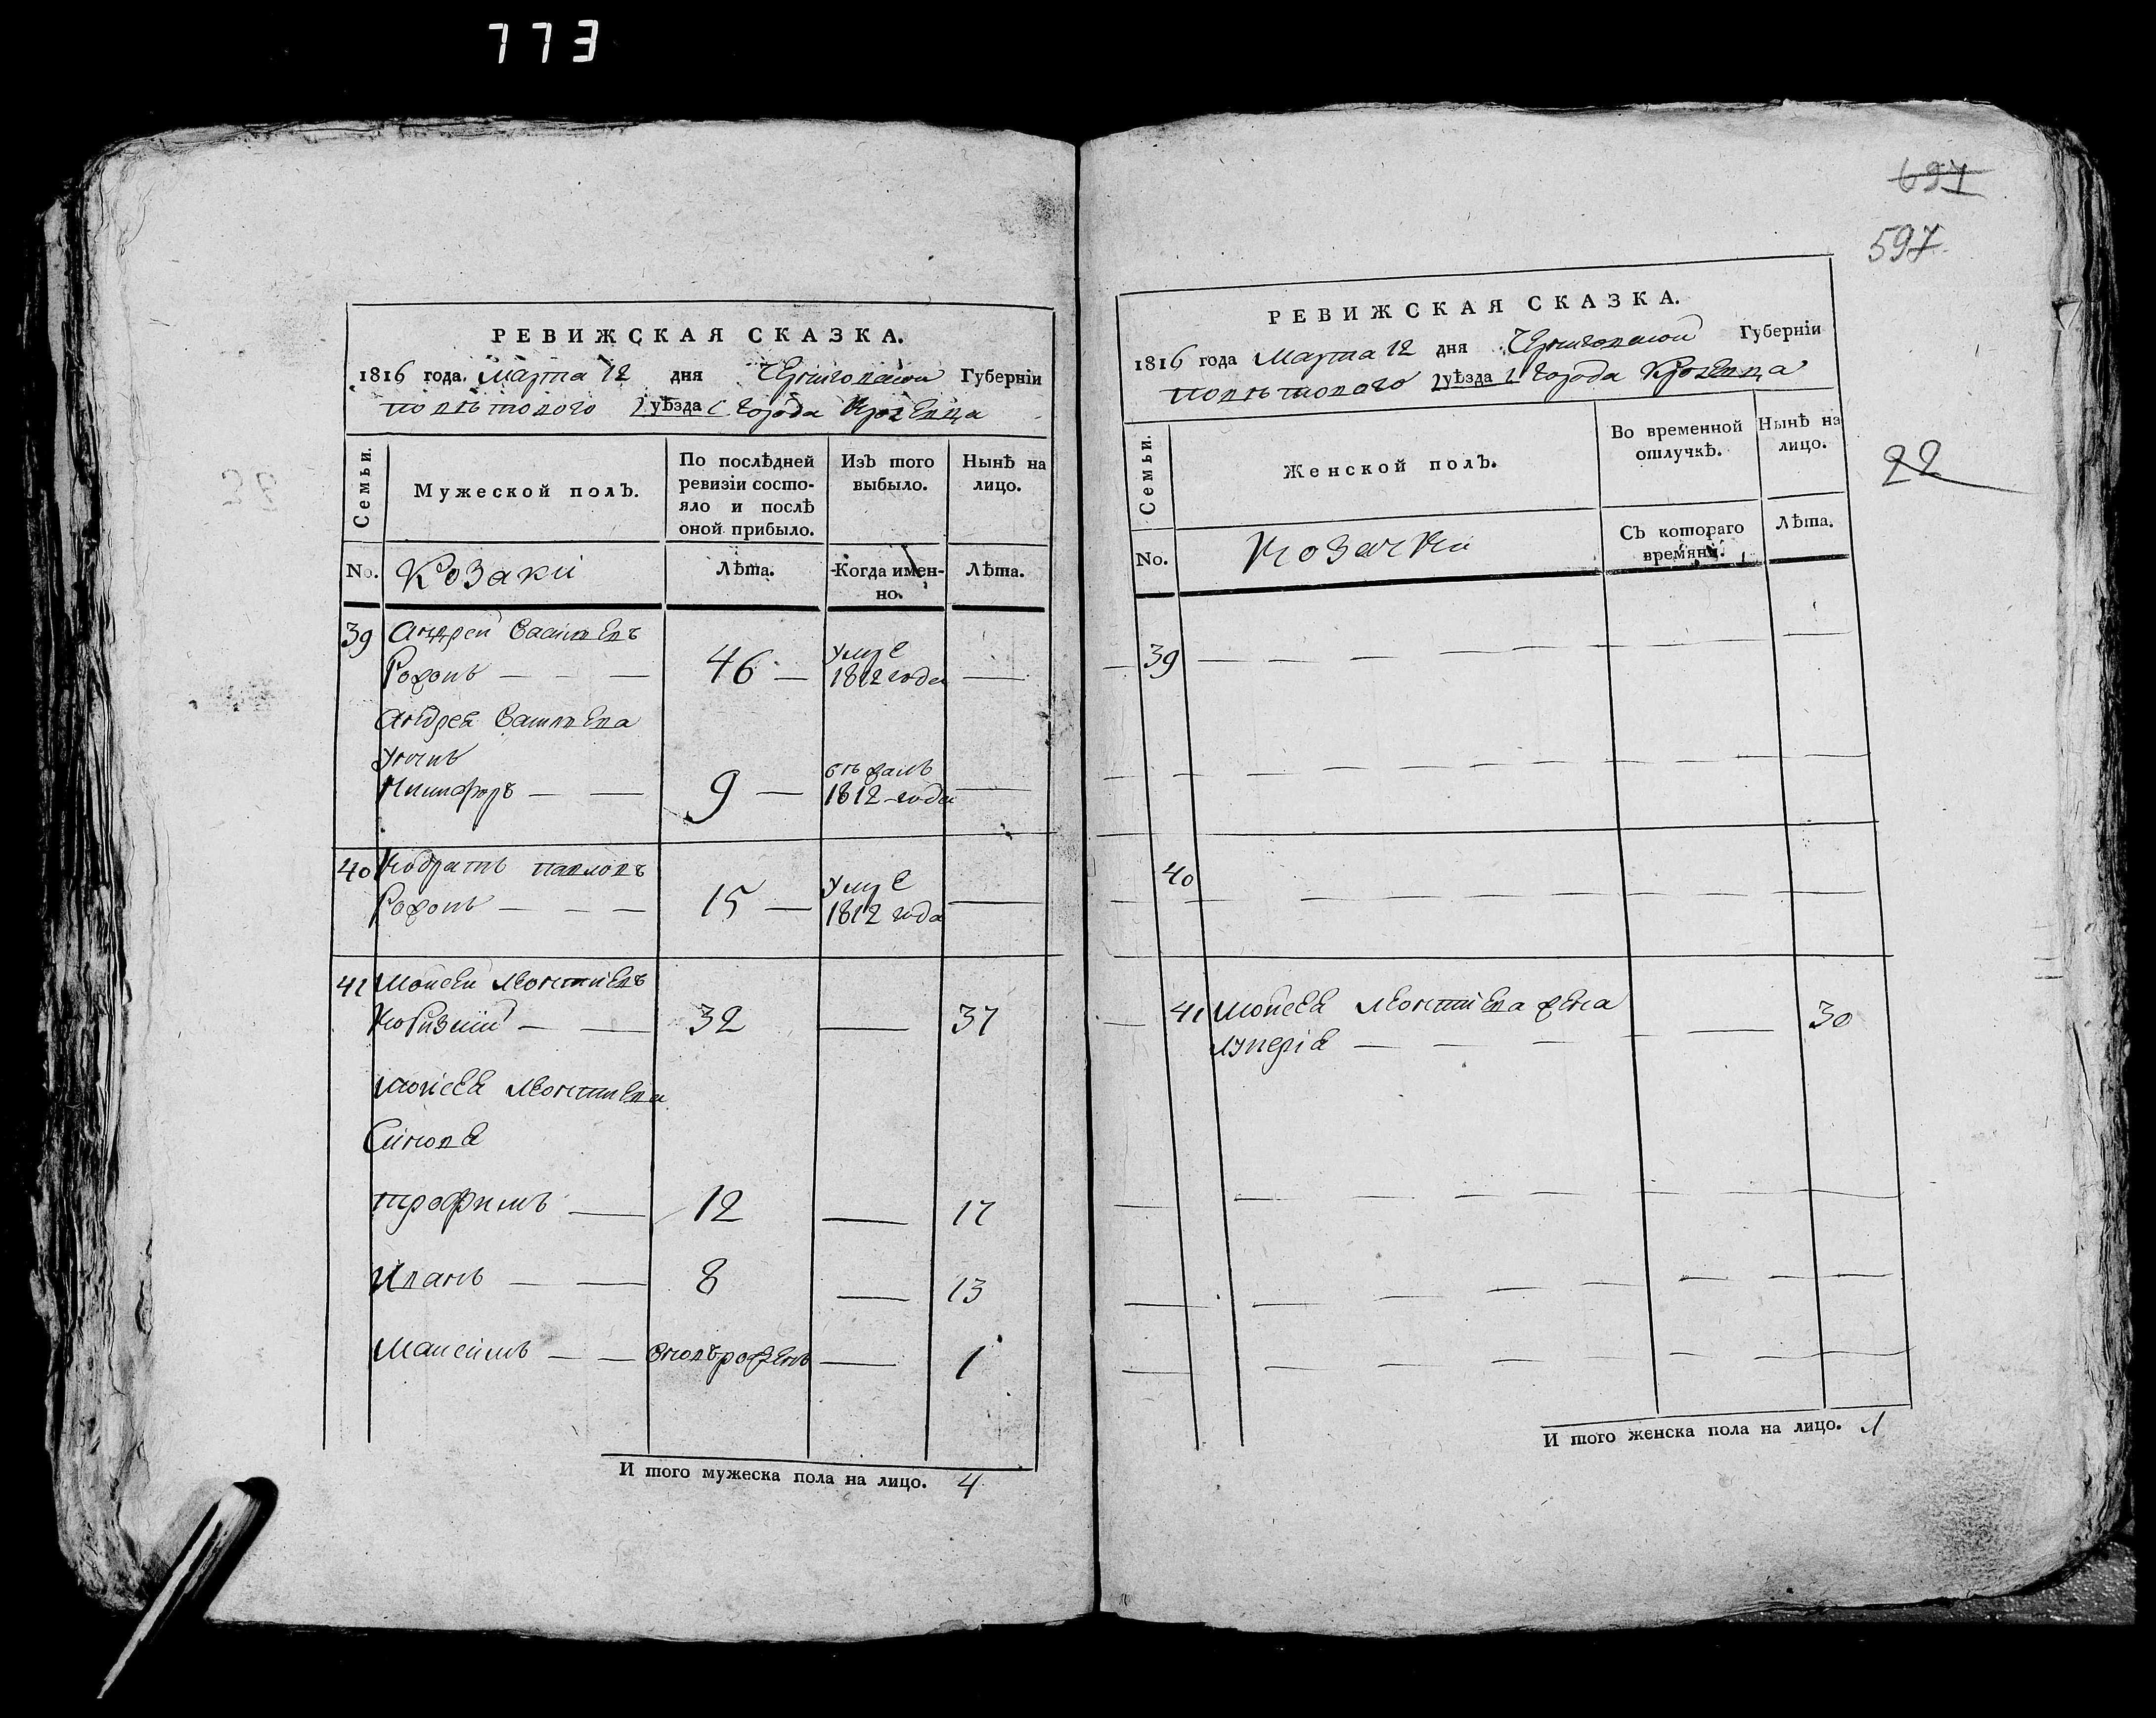 773
РЕВИЖСКАЯ СКАЗКА.
1816 года Марта 12 дня Черниговской Губерніи
поветового уѣзда города Кролевца
Семьи.
Мужеской полъ.
По послѣдней ревизіи состо-
яло и послѣ
оной прибыло.
Изъ того
выбыло.
Нынѣ на
лицо.
No.
Козаки
Лѣта.
Когда имен-
но.
Лѣта.
39 Андрей Василіевъ
46
1812 года
Андрея Василіева
Никифоръ
9
1812 года
40 Кодратъ Павловъ
15
1812 года
41 Мойсей Леонтіевъ
32
37
Мойсея Леонтіева
Синовя
Трофимъ 12 17
Иванъ 8 13
Максимъ вновърожденъ 1
И того мужеска пола на лицо. 4
697
597
РЕВИЖСКАЯ СКАЗКА.
1816 года Марта 12 дня Черниговской Губерніи
поветового уѣзда города Кролевца
22
Семьи.
Женской полъ.
Во временной
отлучкѣ.
Нынѣ на
лицо.
No.
Козачки
Съ котораго
времяни.
Лѣта.
39
40
41 Мойсея Леонтіева жена
30
И того женска пола на лицо. 1